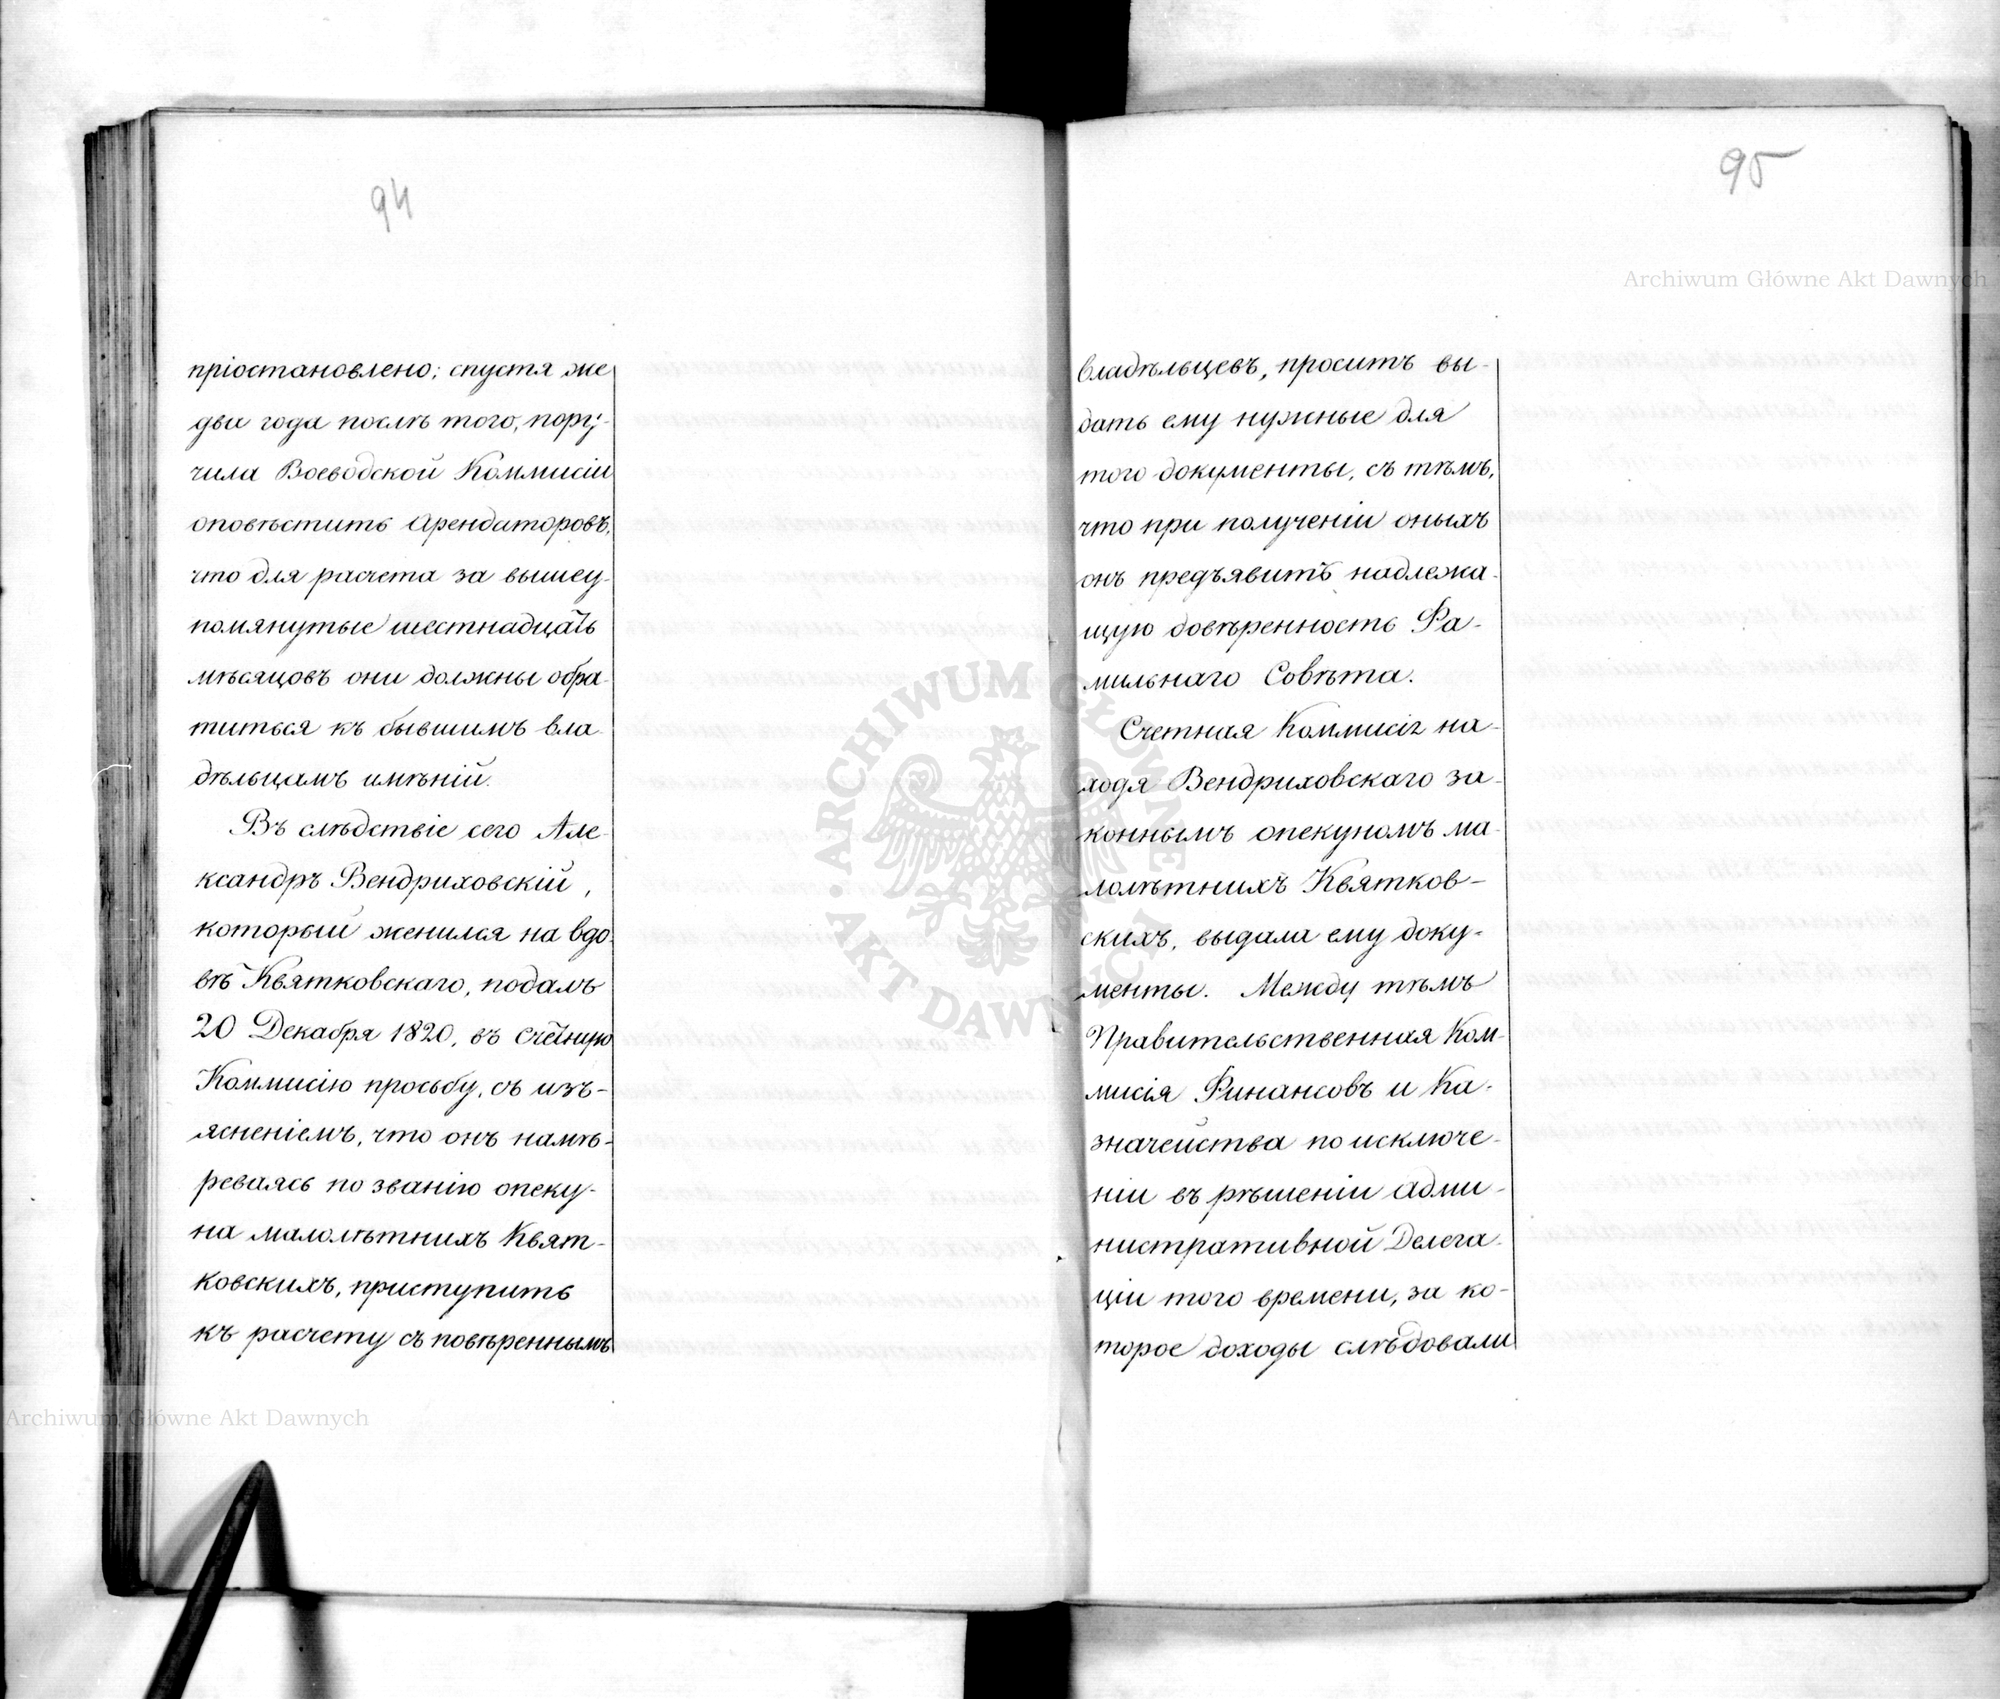 94
пріостановлено; спустя же
два года послѣ того, пору-
чила Воеводской Коммисіи
оповѣстить Арендаторовъ,
что для расчета за вышеу-
помянутые шестнадцать
мѣсяцовъ они должны обра-
титься къ бывшимъ вла-
дѣльцамъ имѣній.
Въ слѣдствіе сего Але-
ксандръ Вендриховскій,
который женился на вдо-
вѣ Квятковскаго, подалъ
20 Декабря 1820, въ Счетную
Коммисію просьбу, съ изъ-
ясненіемъ, что онъ намѣ-
реваясь по званію опеку-
на малолѣтнихъ Квят-
ковскихъ, приступить
къ расчету съ повѣреннымъ
95
владѣльцевъ, проситъ вы-
дать ему нужные для
того документы, съ тѣмъ,
что при полученіи оныхъ
онъ предъявитъ надлежа-
щую довѣренность Фа-
мильнаго Совѣта.
Счетная Коммисія на-
ходя Вендриховскаго за-
коннымъ опекуномъ ма-
лолѣтнихъ Квятков-
скихъ, выдала ему доку-
менты. Между тѣмъ
Правительственная Ком-
мисія Финансовъ и Ка-
значейства по исключе-
ніи въ рѣшеніи адми-
нистративной Делега-
ціи того времени, за ко-
торое доходы слѣдовали
Archiwum Główne Akt Dawnych
Archiwum Główne Akt Dawnych
ARCHIWUM GŁÓWNE AKT DAWNYCH